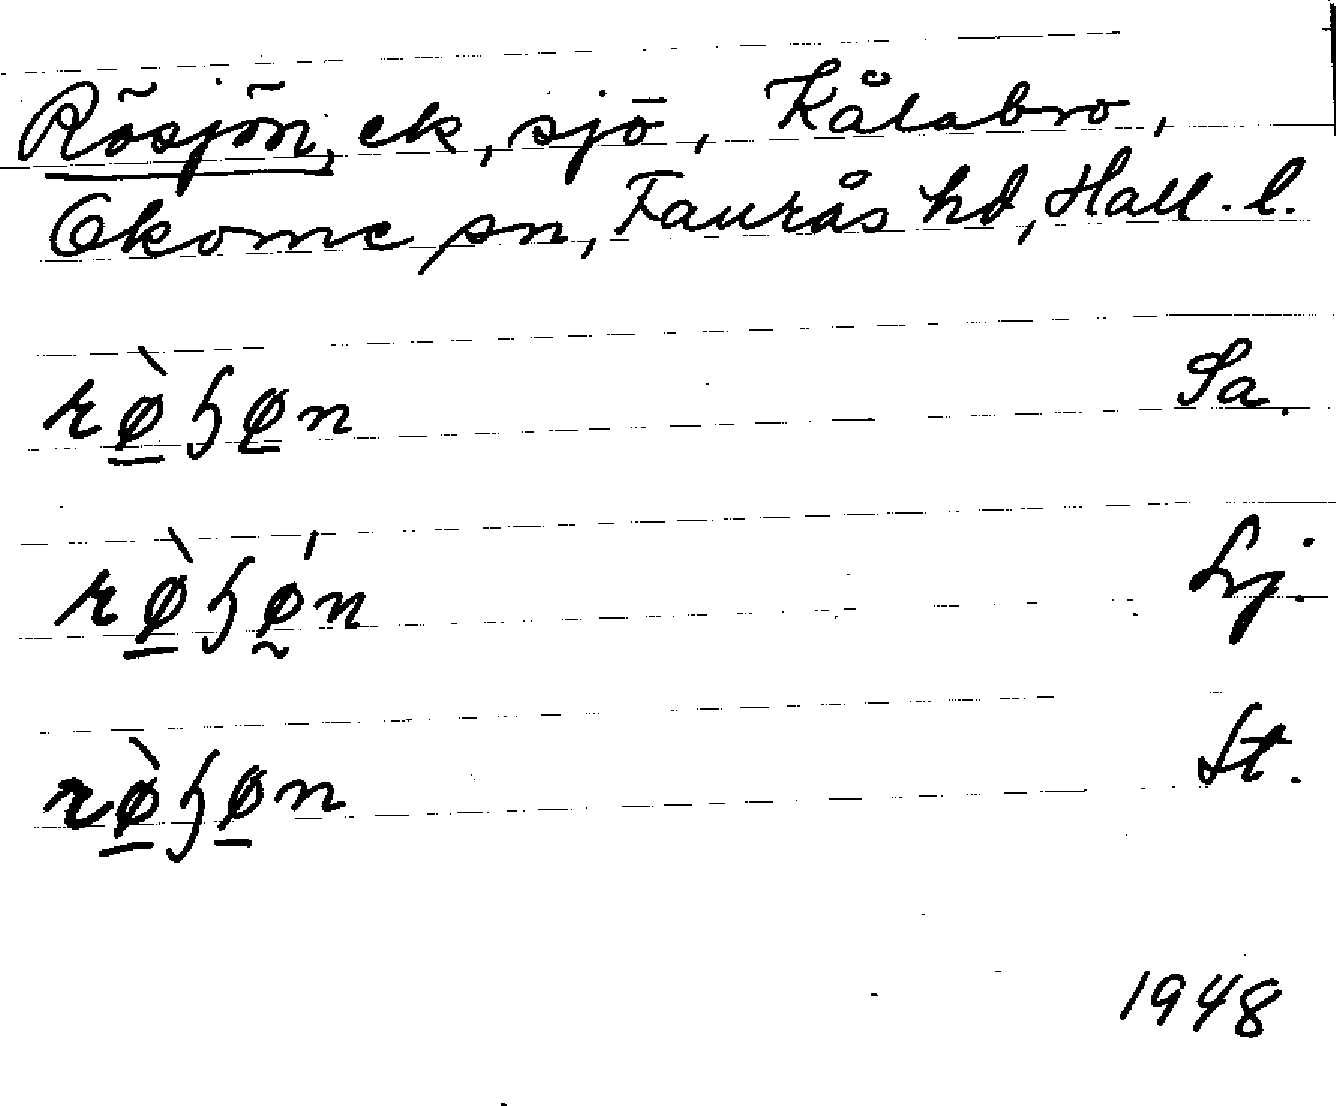 Rösjön, ek, sjö, Kålabro,
Okome sn, Faurås hd, Hall. l.
rø̀ɧøn Sa.
rø̀ɧǿn Lj.
rø̀ɧøn St.
1948